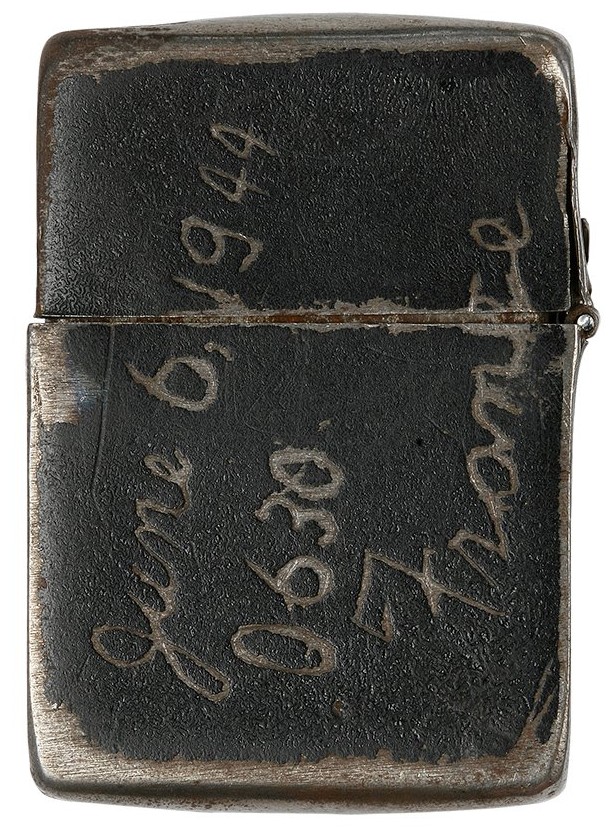 June 6, 1944
0630
France